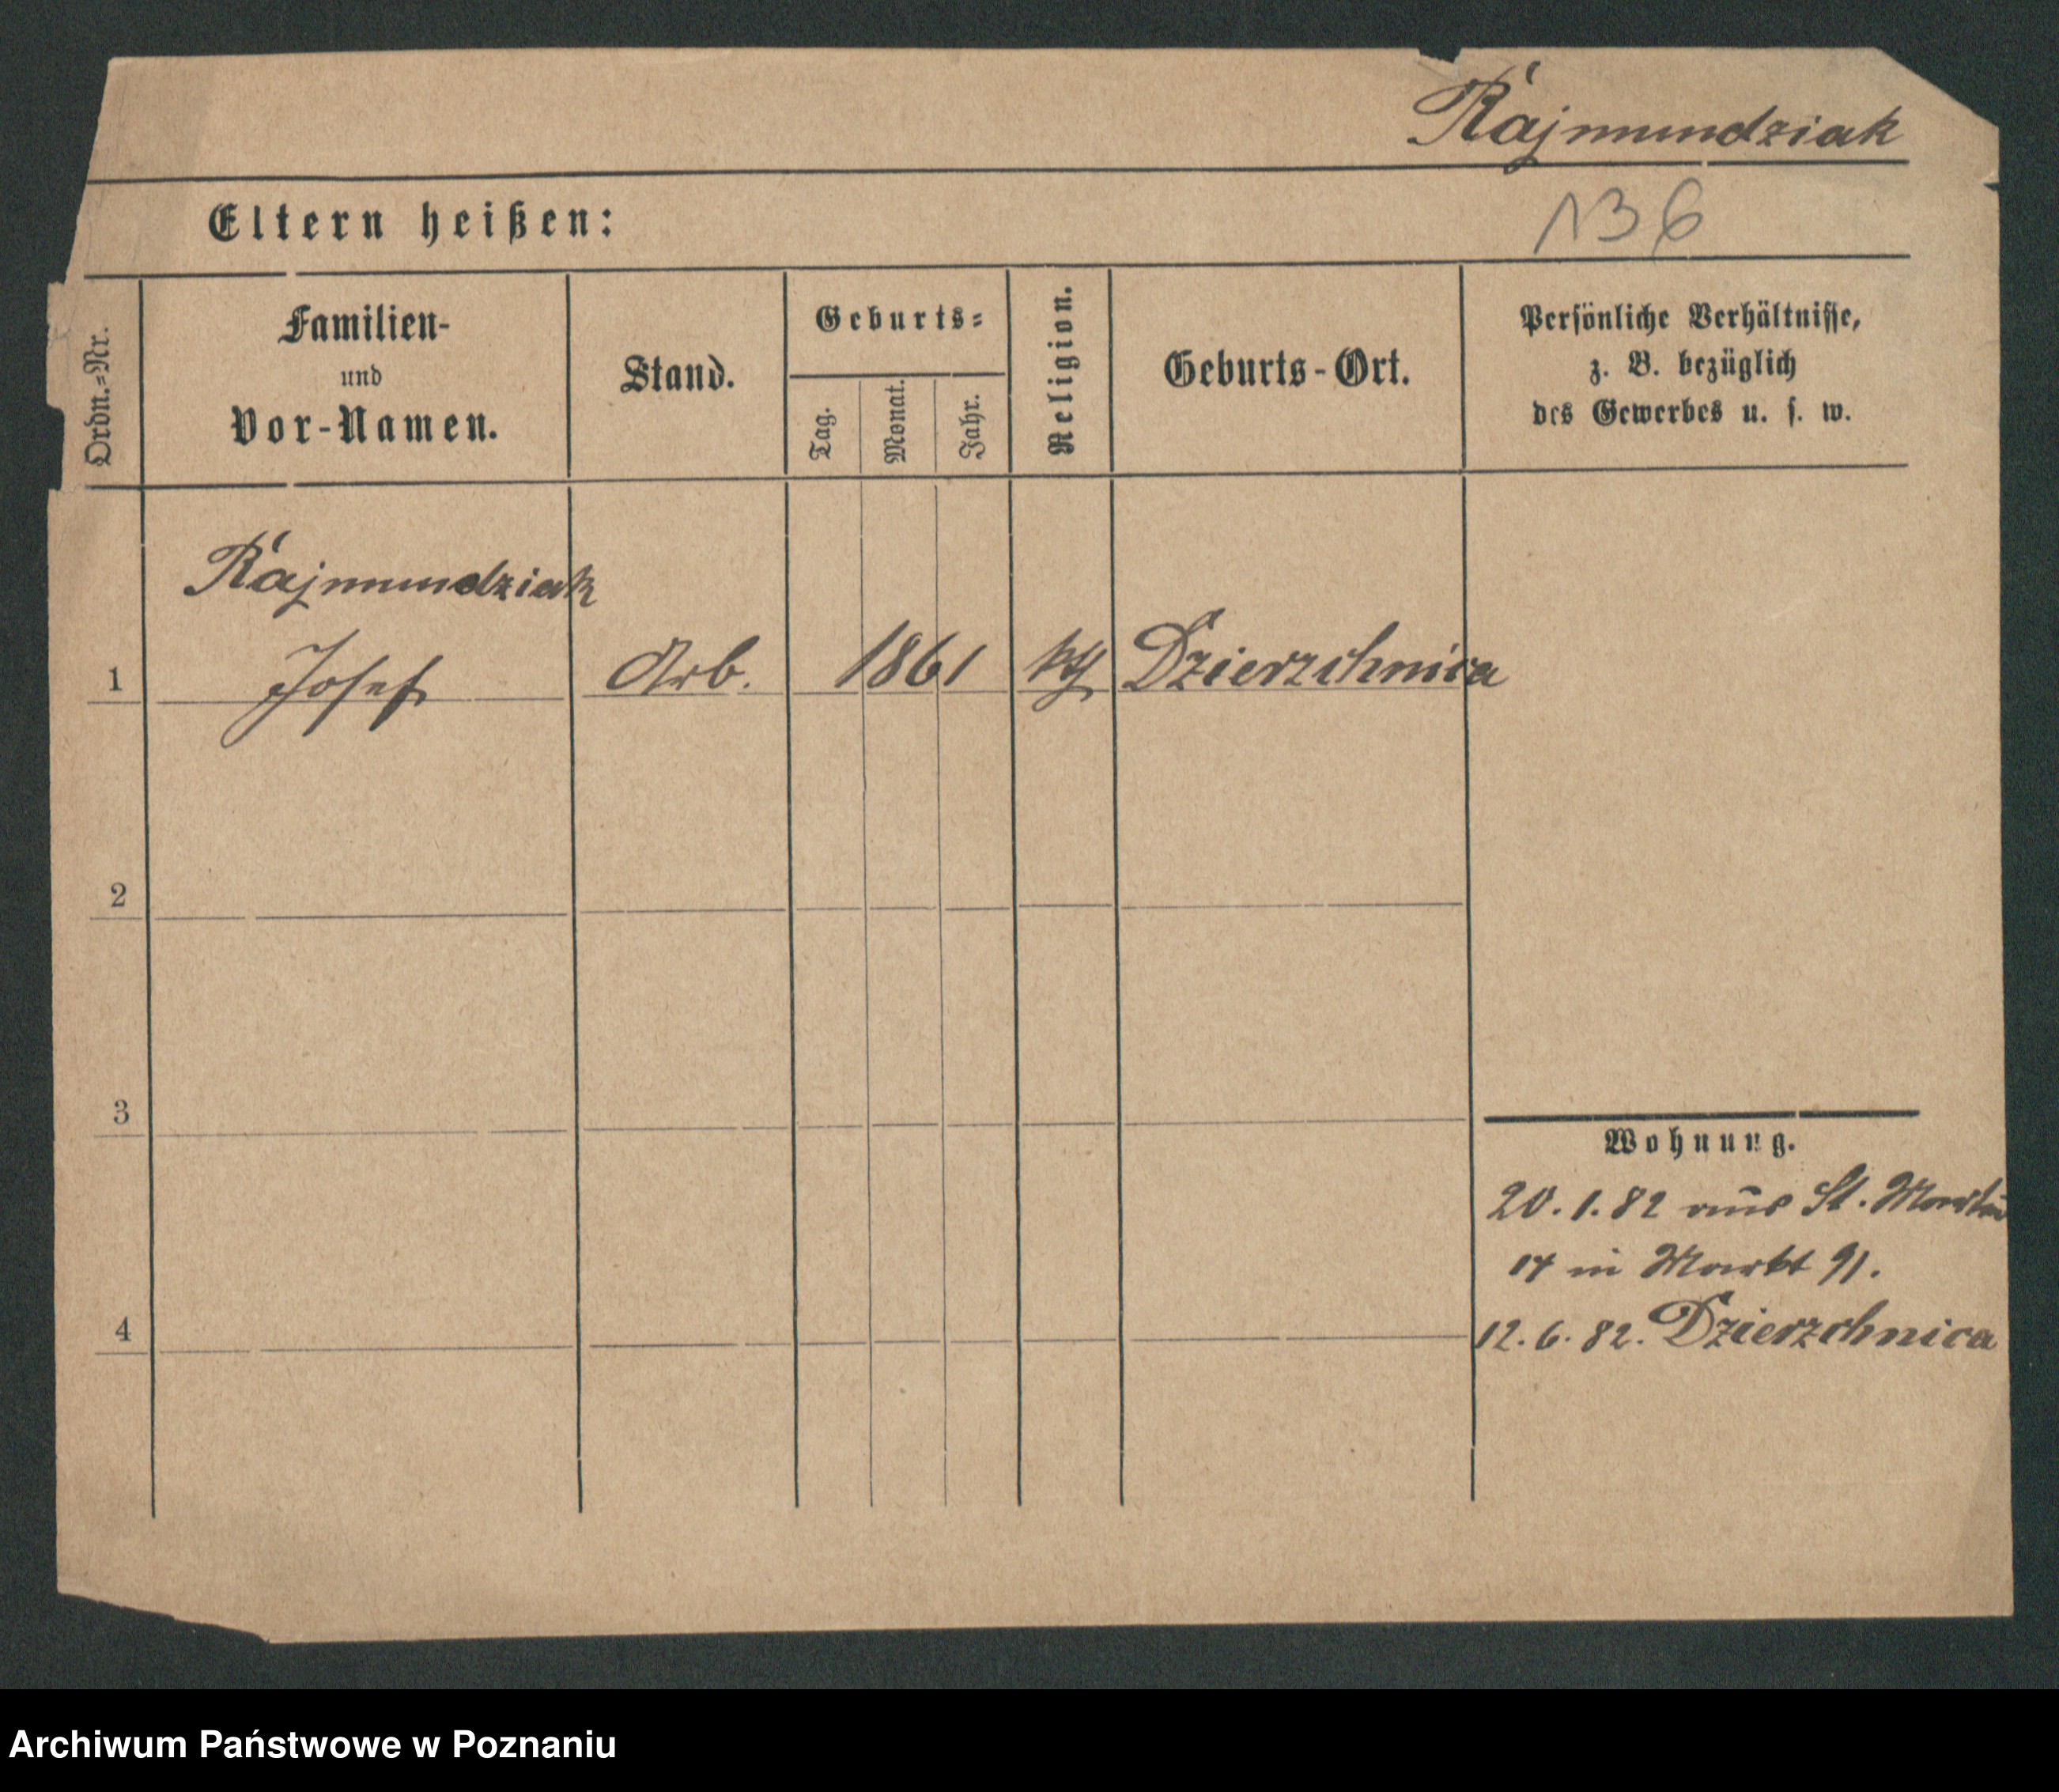 Rajmundziak
Eltern heißen:
136
Ordn.=Nr.
Familien-
und
Vor-Namen.
Stand.
Geburts=
Tag.
Monat.
Jahr.
Religion.
Geburts-Ort.
Persönliche Verhältnisse,
z. B. bezüglich
des Gewerbes u. s. w.
Rajmundziak
1 Josef Arb. 1861 kth Dzierzchnica
2
3
Wohnung.
20.1.82 aus St. Martin
17 in Markt 91.
4
12.6.82. Dzierzchnica
Archiwum Państwowe w Poznaniu